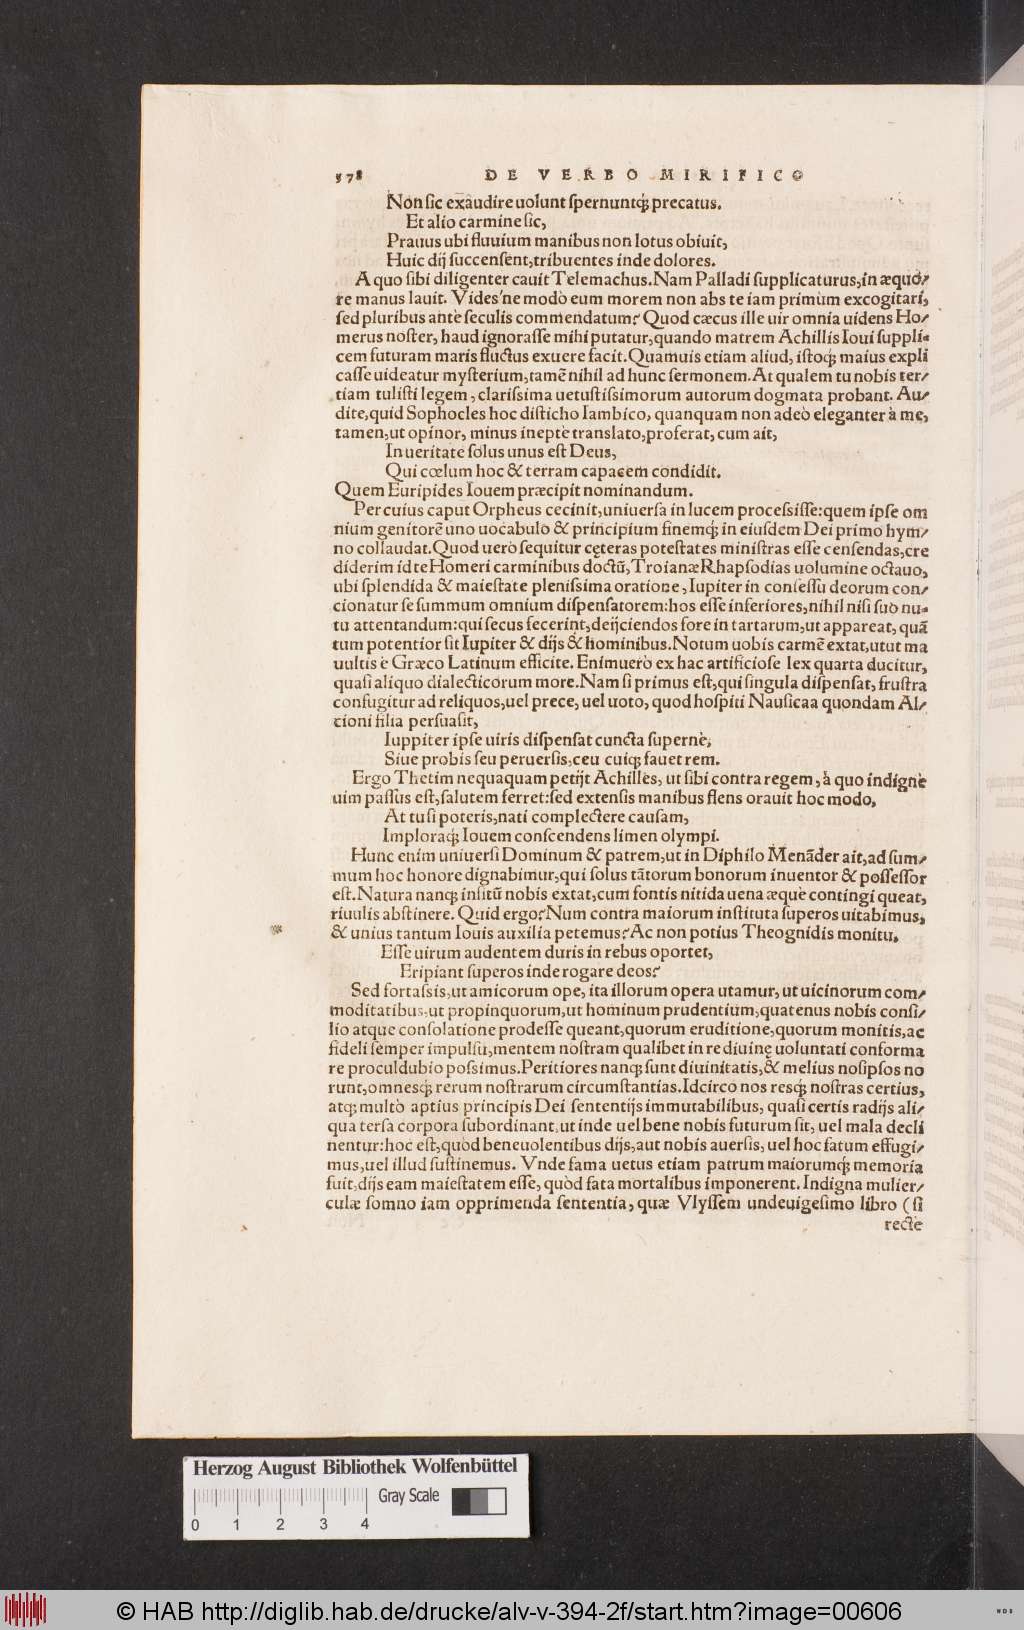 578 DE VERBO MIRIFICO
Non sic exaudire uolunt spernuntq́; precatus.
Et alio carmine sic,
Prauus ubi fluuium manibus non lotus obiuit,
Huic dij succensent, tribuentes inde dolores.
A quo sibi diligenter cauit Telemachus. Nam Palladi supplicaturus, in æquo/
re manus lauit. Vides'ne modò eum morem non abs te iam primùm excogitari,
sed pluribus antè seculis commendatum? Quod cæcus ille uir omnia uidens Ho/
merus noster, haud ignorasse mihi putatur, quando matrem Achillis Ioui suppli-
cem futuram maris fluctus exuere facit. Quamuis etiam aliud, istoq́; maius expli
casse uideatur mysterium, tamẽ nihil ad hunc sermonem. At qualem tu nobis ter/
tiam tulisti legem, clarissima uetustissimorum autorum dogmata probant. Au/
dite, quid Sophocles hoc disticho Iambico, quanquam non adeò eleganter à me,
tamen, ut opinor, minus ineptè translato, proferat, cum ait,
In ueritate solus unus est Deus,
Qui cœlum hoc & terram capacem condidit.
Quem Euripides Iouem præcipit nominandum.
Per cuius caput Orpheus cecinit, uniuersa in lucem processisse: quem ipse om
nium genitorẽ uno uocabulo & principium finemq́; in eiusdem Dei primo hym/
no collaudat. Quod uerò sequitur cęteras potestates ministras esse censendas, cre
diderim id te Homeri carminibus doctũ, Troianæ Rhapsodias uolumine octauo,
ubi splendida & maiestate plenissima oratione, Iupiter in consessu deorum con/
cionatur se summum omnium dispensatorem: hos esse inferiores, nihil nisi suo nu-
tu attentandum: qui secus fecerint, deijciendos fore in tartarum, ut appareat, quã
tum potentior sit Iupiter & dijs & hominibus. Notum uobis carmẽ extat, utut ma
uultis è Græco Latinum efficite. Enimuerò ex hac artificiose lex quarta ducitur,
quasi aliquo dialecticorum more. Nam si primus est, qui singula dispensat, frustra
confugitur ad reliquos, uel prece, uel uoto, quod hospiti Nausicaa quondam Al/
cioni filia persuasit,
Iuppiter ipse uiris dispensat cuncta supernè,
Siue probis seu peruersis, ceu cuiq; fauet rem.
Ergo Thetim nequaquam petijt Achilles, ut sibi contra regem, à quo indignè
uim passus est, salutem ferret: sed extensis manibus flens orauit hoc modo,
At tu si poteris, nati complectere causam,
Imploraq́; Iouem conscendens limen olympi.
Hunc enim uniuersi Dominum & patrem, ut in Diphilo Menãder ait, ad sum/
mum hoc honore dignabimur, qui solus tãtorum bonorum inuentor & possessor
est. Natura nanq; insitũ nobis extat, cum fontis nitida uena æquè contingi queat,
riuulis abstinere. Quid ergo? Num contra maiorum instituta superos uitabimus,
& unius tantum Iouis auxilia petemus? Ac non potius Theognidis monitu,
Esse uirum audentem duris in rebus oportet,
Eripiant superos inde rogare deos?
Sed fortassis, ut amicorum ope, ita illorum opera utamur, ut uicinorum com/
moditatibus, ut propinquorum, ut hominum prudentium, quatenus nobis consi/
lio atque consolatione prodesse queant, quorum eruditione, quorum monitis, ac
fideli semper impulsu, mentem nostram qualibet in re diuinę uoluntati conforma
re proculdubio possimus. Peritiores nanq; sunt diuinitatis, & melius nosipsos no
runt, omnesq́; rerum nostrarum circumstantias. Idcirco nos resq́; nostras certius,
atq; multò aptius principis Dei sententijs immutabilibus, quasi certis radijs ali/
qua tersa corpora subordinant, ut inde uel bene nobis futurum sit, uel mala decli
nentur: hoc est, quòd beneuolentibus dijs, aut nobis auersis, uel hoc fatum effugi/
mus, uel illud sustinemus. Vnde fama uetus etiam patrum maiorumq́; memoria
fuit, dijs eam maiestatem esse, quòd fata mortalibus imponerent. Indigna mulier/
culæ somno iam opprimenda sententia, quæ Vlyssem undeuigesimo libro (si
rectè
Herzog August Bibliothek Wolfenbüttel
Gray Scale
0 1 2 3 4
© HAB http://diglib.hab.de/drucke/alv-v-394-2f/start.htm?image=00606